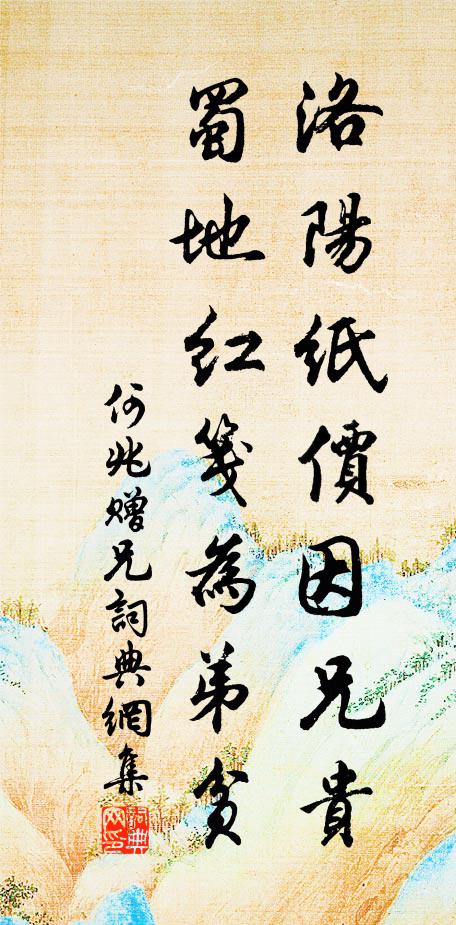 洛陽紙價因兄貴
蜀地红箋為弟貧
何兆贈兄詞典網集
詞典網印